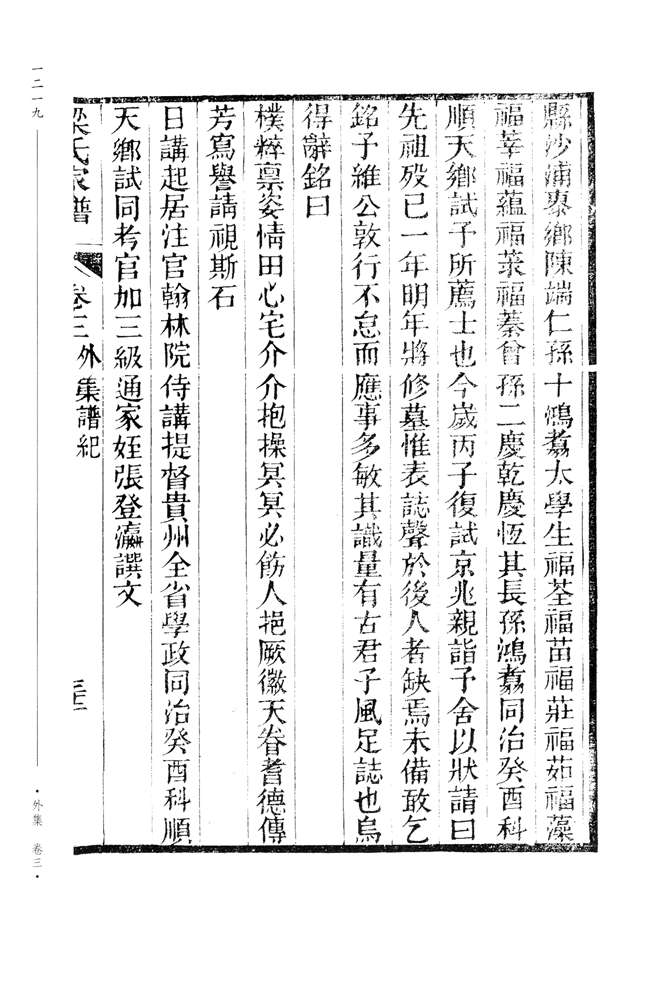 縣沙浦泰鄉陳端仁孫十鴻翥太學生福荃福苗福莊福茹福藻
福莘福蘊福萊福蓁曾孫二慶乾慶恆其長孫鴻翥同治癸酉科
順天鄉試予所薦士也今歲丙子復試京兆親詣予舍以狀請曰
先祖歿已一年明年將修墓惟表誌聲於後人者缺焉未備敢乞
銘予維公敦行不怠而應事多敏其識量有古君子風足誌也烏
得辭銘曰
樸粹禀姿情田心宅介介抱操冥冥必飭人挹厥徽天眷耆德傳
芳寫譽請視斯石
日講起居注官翰林院侍講提督貴州全省學政同治癸酉科順
天鄉試同考官加三級通家姪張登瀛譔文
梁氏家譜 卷三 外集譜紀
一二一九
·外集 卷三·